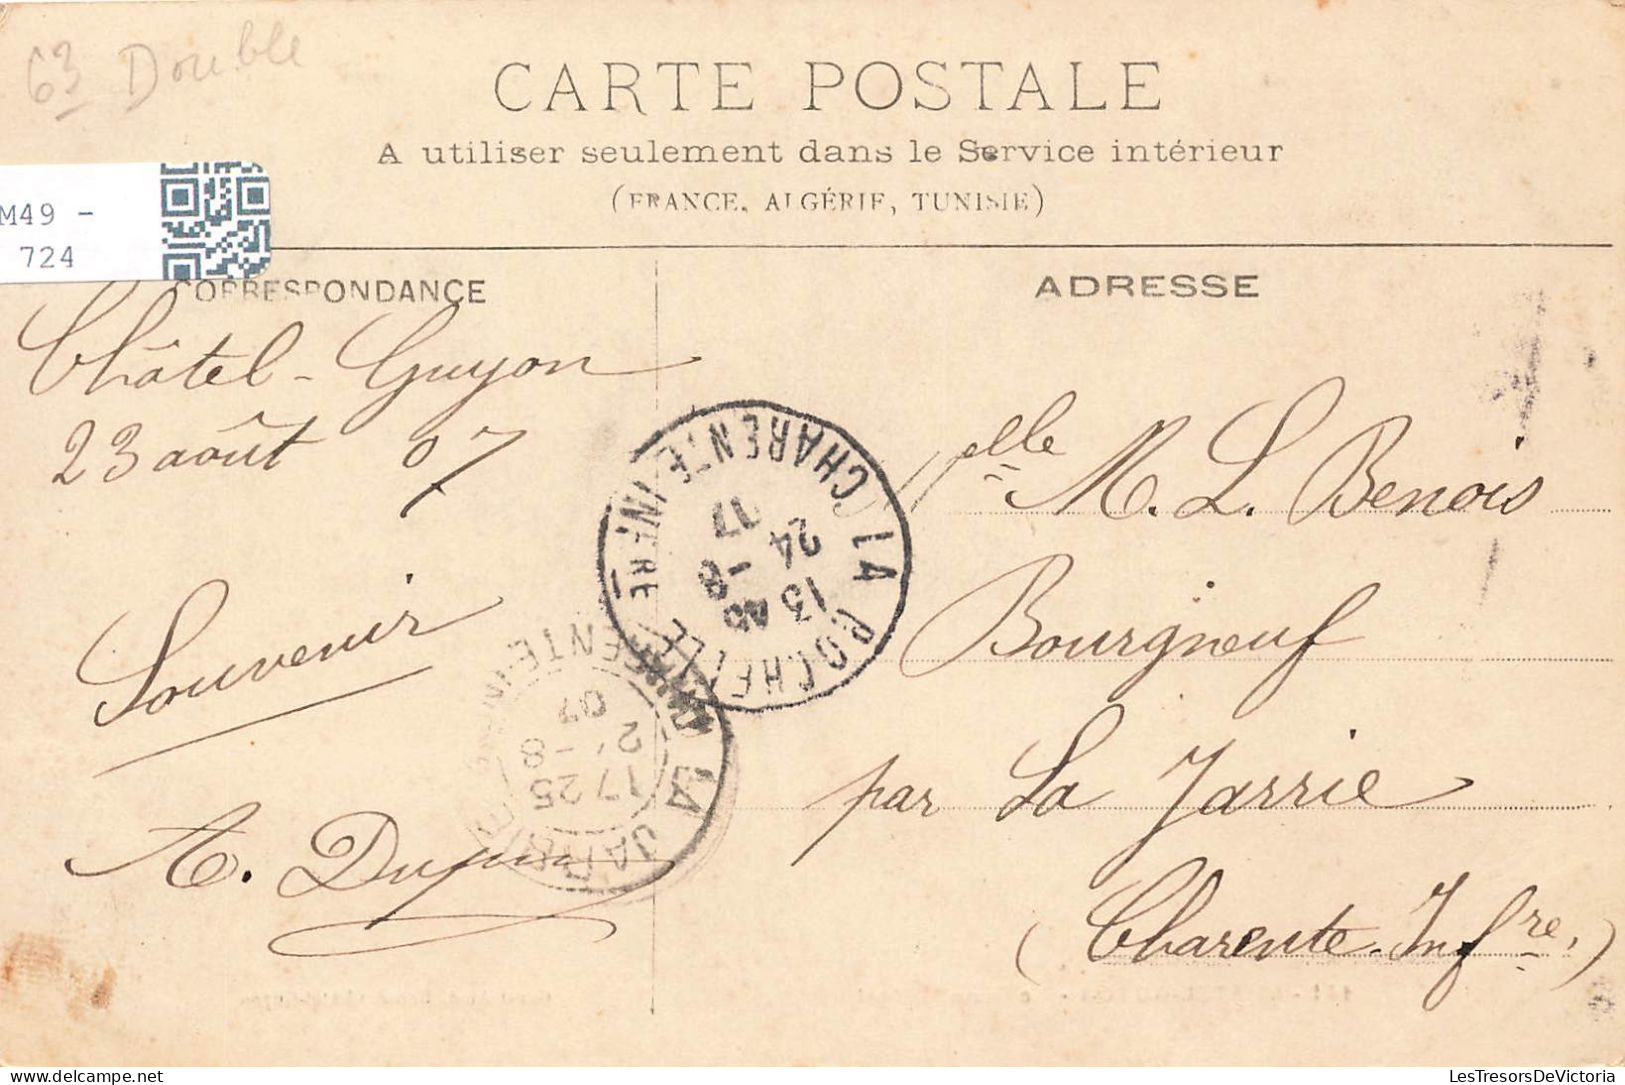 63 Double
CARTE POSTALE
A utiliser seulement dans le Service intérieur
(FRANCE, ALGÉRIE, TUNISIE)
M49 -
724
CORRESPONDANCE
ADRESSE
Châtel-Guyon
23 août 07
Souvenir
Melle M. L. Benois
Bourgneuf
par La Jarrie
(Charente-Infre.)
LA ROCHELLE
CHARENTE INFRE
13 45
24 -8
LA JARRIE
17 25
2 -8
07
LesTresorsDeVictoria